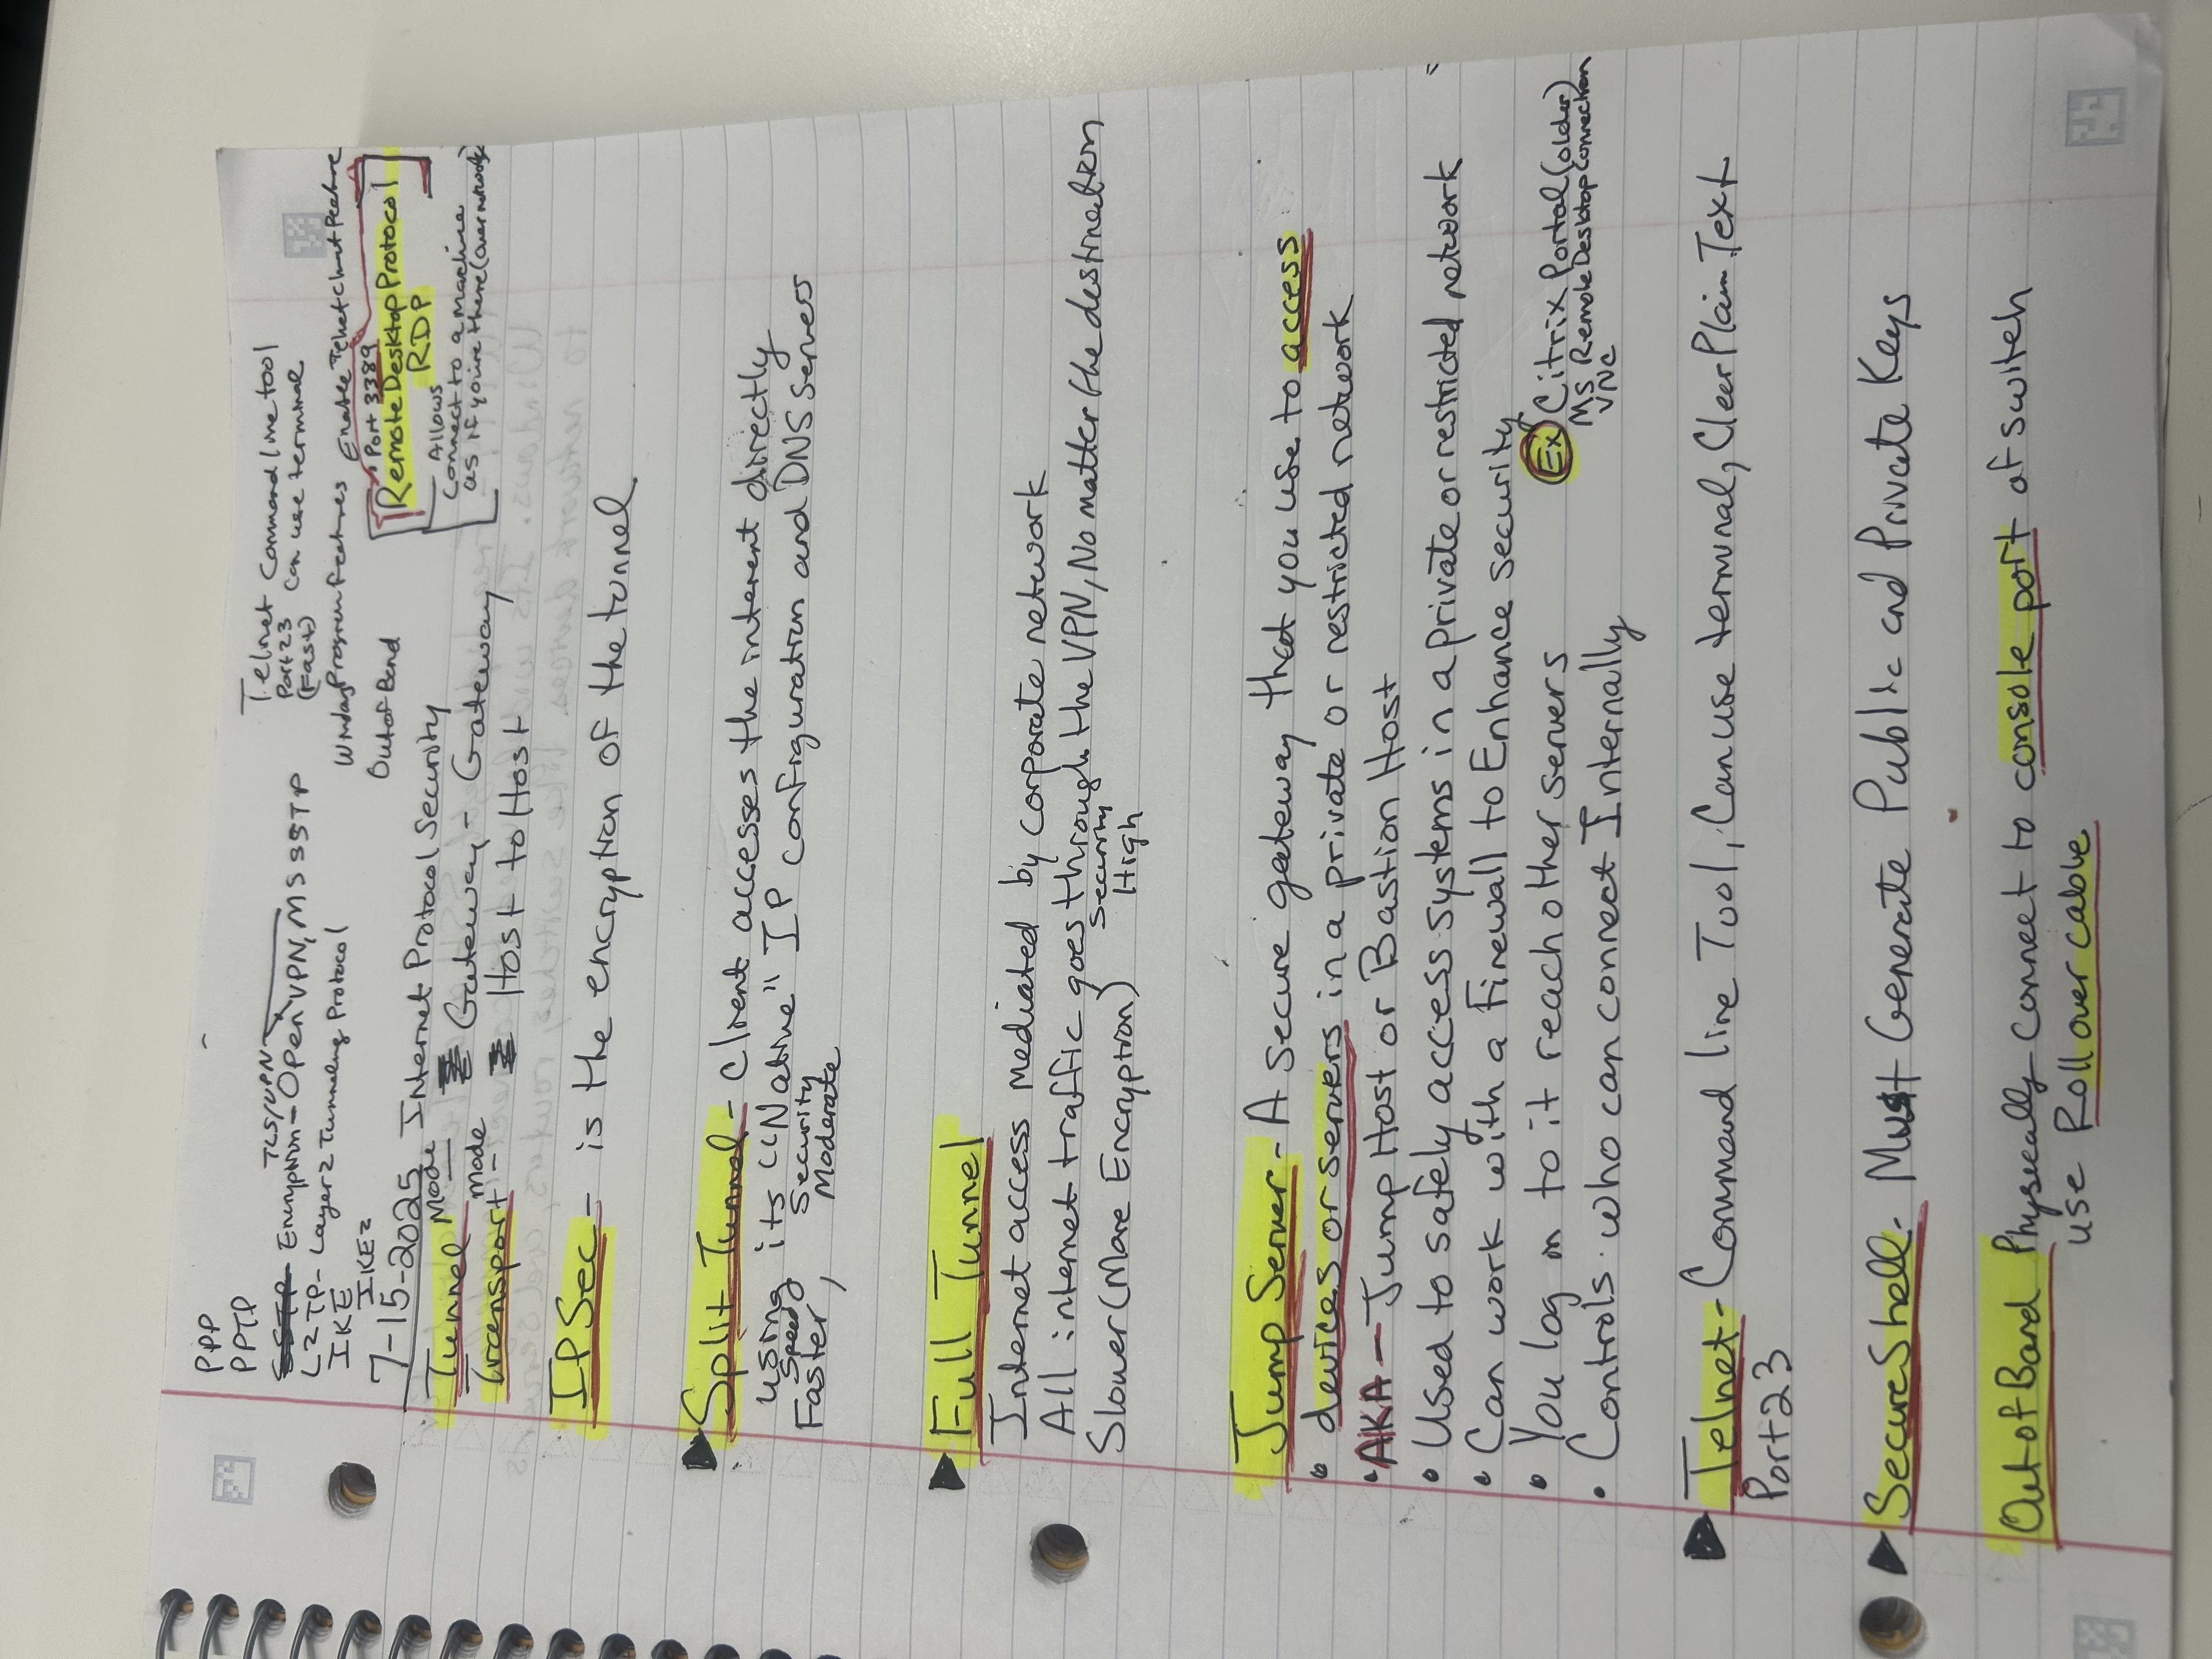 PPP
PPTP
TLS/VPN
SSTP- Encryption - Open VPN, MS SSTP
L2TP- Layer 2 Tunneling Protocol
IKE
IKE2
7-15-2025
Telnet Command line tool
Port 23 Can use terminal
(Fast)
Program Features Enable Telnet Client Feature
Out of Band
• Port 3389
Remote Desktop Protocol
RDP
Allows
Connect to a machine
as if you're there (over network)
Internet Protocol Security
Tunnel Mode Gateway - Gateway
Transport mode - Host to Host
IPSec - is the encryption of the tunnel
Split Tunnel - Client accesses the interent directly
using its "Native" IP configuration and DNS servers
Speed Security
Faster, Moderate
Full Tunnel
Internet access mediated by corporate network
All internet traffic goes through the VPN, No matter the destination
Security
Slower (More Encryption) High
Jump Server - A secure gateway that you use to access
• devices or servers in a private or restricted network
• AKA - Jump Host or Bastion Host
• Used to safely access systems in a private or restricted network
• Can work with a Firewall to Enhance security
• You log in to it reach other servers
• Controls who can connect Internally
Ex Citrix Portal (older)
MS Remote Desktop Connection
VNC
Telnet - Command line Tool, Can use terminal, Clear Plain Text
Port 23
Secure Shell - Must Generate Public and Private Keys
Out of Band Physically connect to console port of switch
use Roll over cable